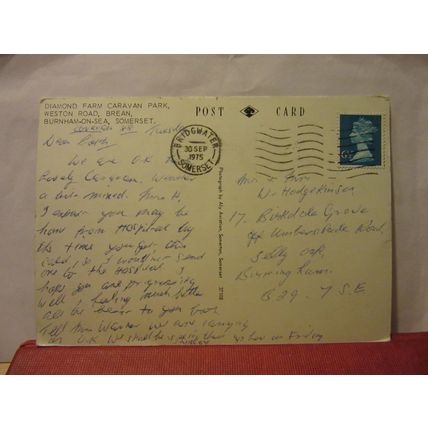 DIAMOND FARM CARAVAN PARK,
WESTON ROAD, BREAN,
BURNHAM-ON-SEA, SOMERSET.
POST CARD
BRIDGWATER
30 SEP
1975
SOMERSET
Photograph by Air Aviation, Somerton, Somerset
Tuesday
Dear Both
We are O.K.
Lovely Caravan. Weather
a bit mixed. Mrs H,
I expect you may be
home from Hospital by
the time you get this
card, so I wouldn't send
one to the Hospital. I
hope you are progressing
well & feeling much better
all the best to you both
Tell Mrs we are
O.K. We should be on Friday
Mr & Mrs
W. Hodgkinson
17. Grove
Off Umberslade Road,
Selly Oak,
Birmingham.
B29. 7SE.